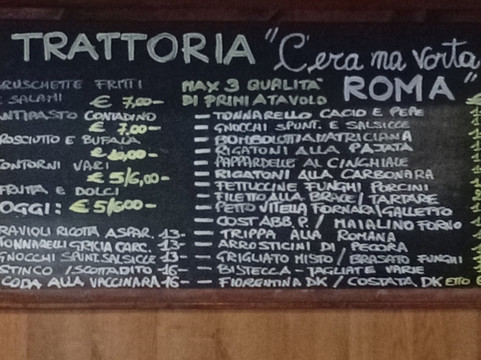 TRATTORIA "C'era na vorta
ROMA"
BRUSCHETTE FRITTI
E SALAMI
€ 7,00-
ANTIPASTO CONTADINO
€ 7,00-
PROSCIUTTO E BUFALA
€ 10,00-
CONTORNI VARI
€ 5/6,00-
FRUTTA E DOLCI
OGGI: € 5/6,00-
RAVIOLI RICOTTA ASPAR. 13-
TONNARELLI GRICIA CARC. 13-
GNOCCHI SPUNT. SALSICCE 13-
STINCO / SCOTTADITO 16-
CODA ALLA VACCINARA 16-
MAX 3 QUALITA'
DI PRIMI A TAVOLO
- TONNARELLO CACIO E PEPE
- GNOCCHI SPUNT. E SALSICCE
- BOMBOLOTTI AMATRICIANA
- RIGATONI ALLA PAJATA
- PAPPARDELLE AL CINGHIALE
- RIGATONI ALLA CARBONARA
- FETTUCCINE FUNGHI PORCINI
- FILETTO ALLA BRACE / TARTARE
- PETTO VITELLA FORNARA / GALLETTO
- COST. ABB. P. / MAIALINO FORNO
- TRIPPA ALLA ROMANA
- ARROSTICINI DI PECORA
- GRIGLIATO MISTO / BRASATO FUNGHI
- BISTECCA - TAGLIATE VARIE
- FIORENTINA DK / COSTATA DK ETTO